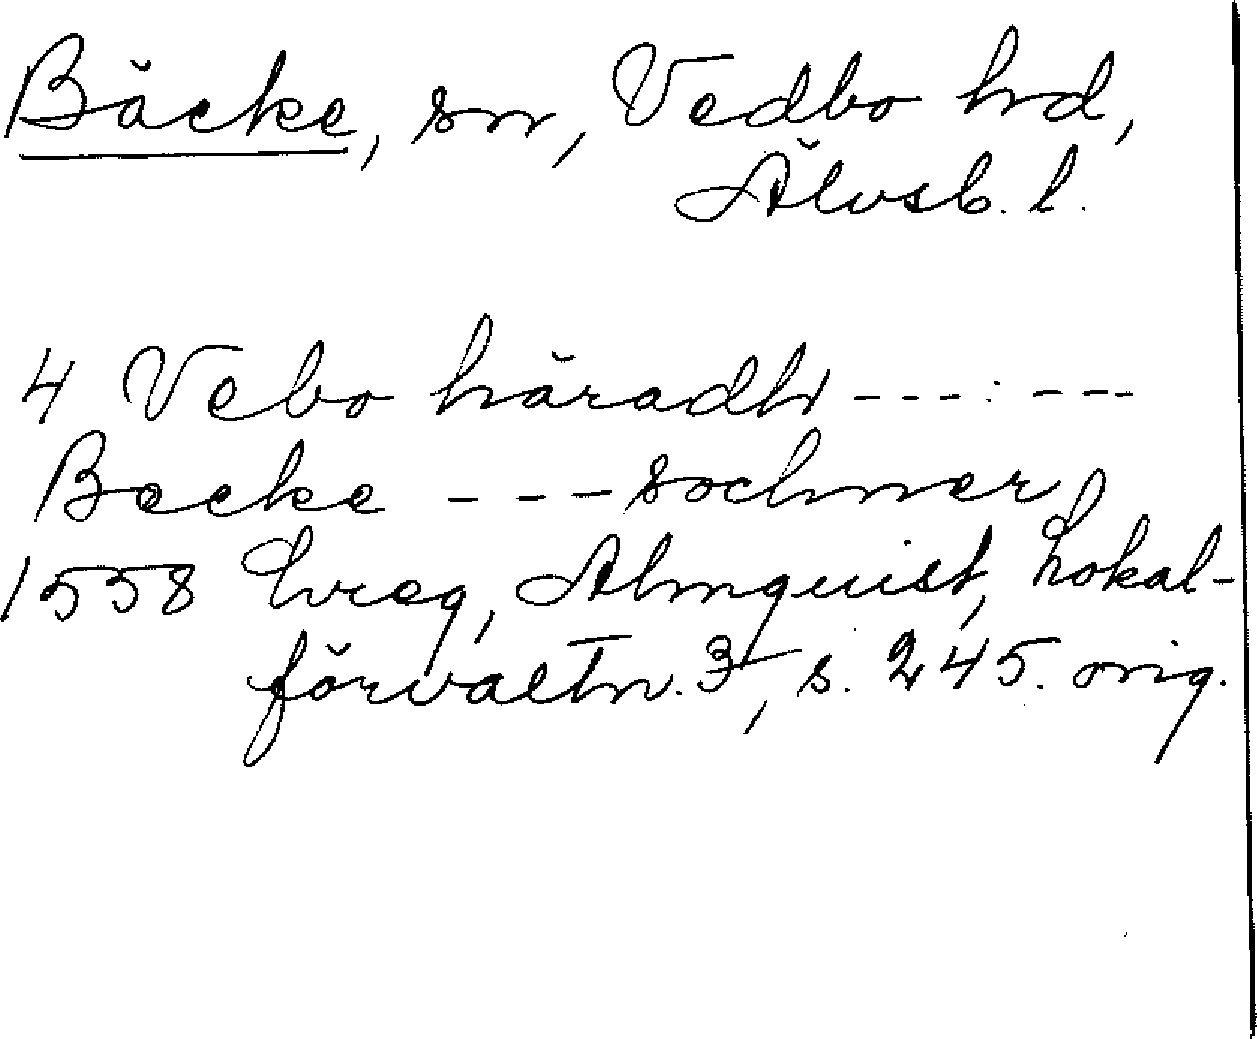 Bäcke, sn, Vedbo hrd,
Älvsb. l.
4 Vebo häradh ---:---
Becke --- sochner
1558 Lvreg, Almquist, Lokal-
förvaltn. 3, s. 245. orig.